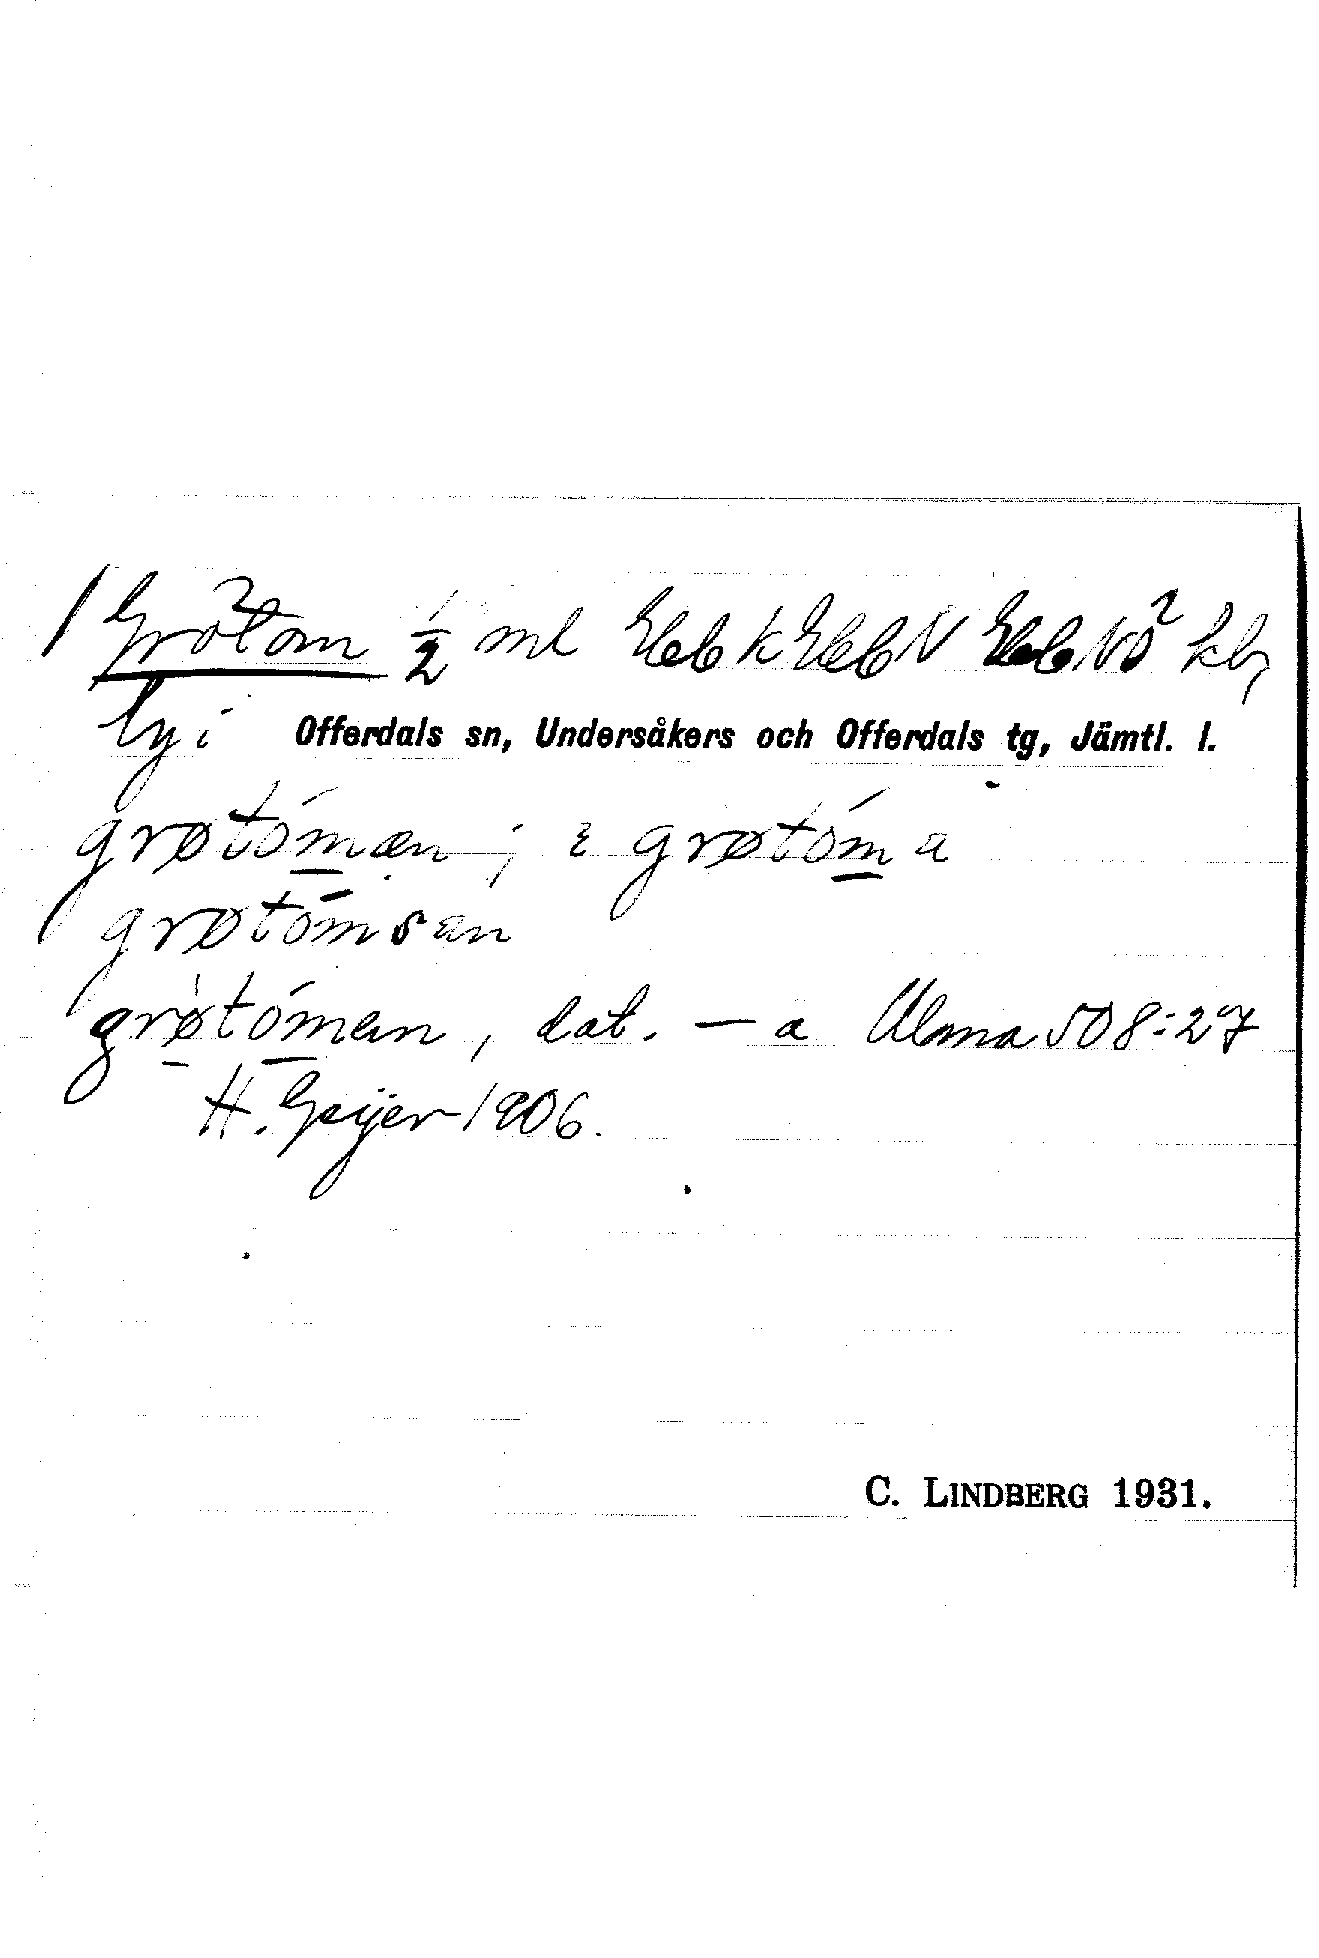 Grötom 1/2 ml
by i Offerdals sn, Undersåkers och Offerdals tg, Jämtl. l.
grøtóman, i grøtóma
grøtómsan
grøtóman, dat. — a Ulma 508:27
H. Geijer 1906.
C. LINDBERG 1931.